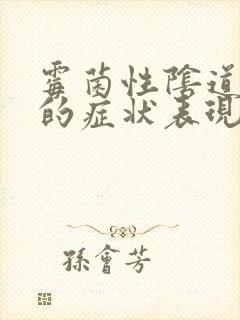 霉菌性陰道
的症状表現
孫會芳